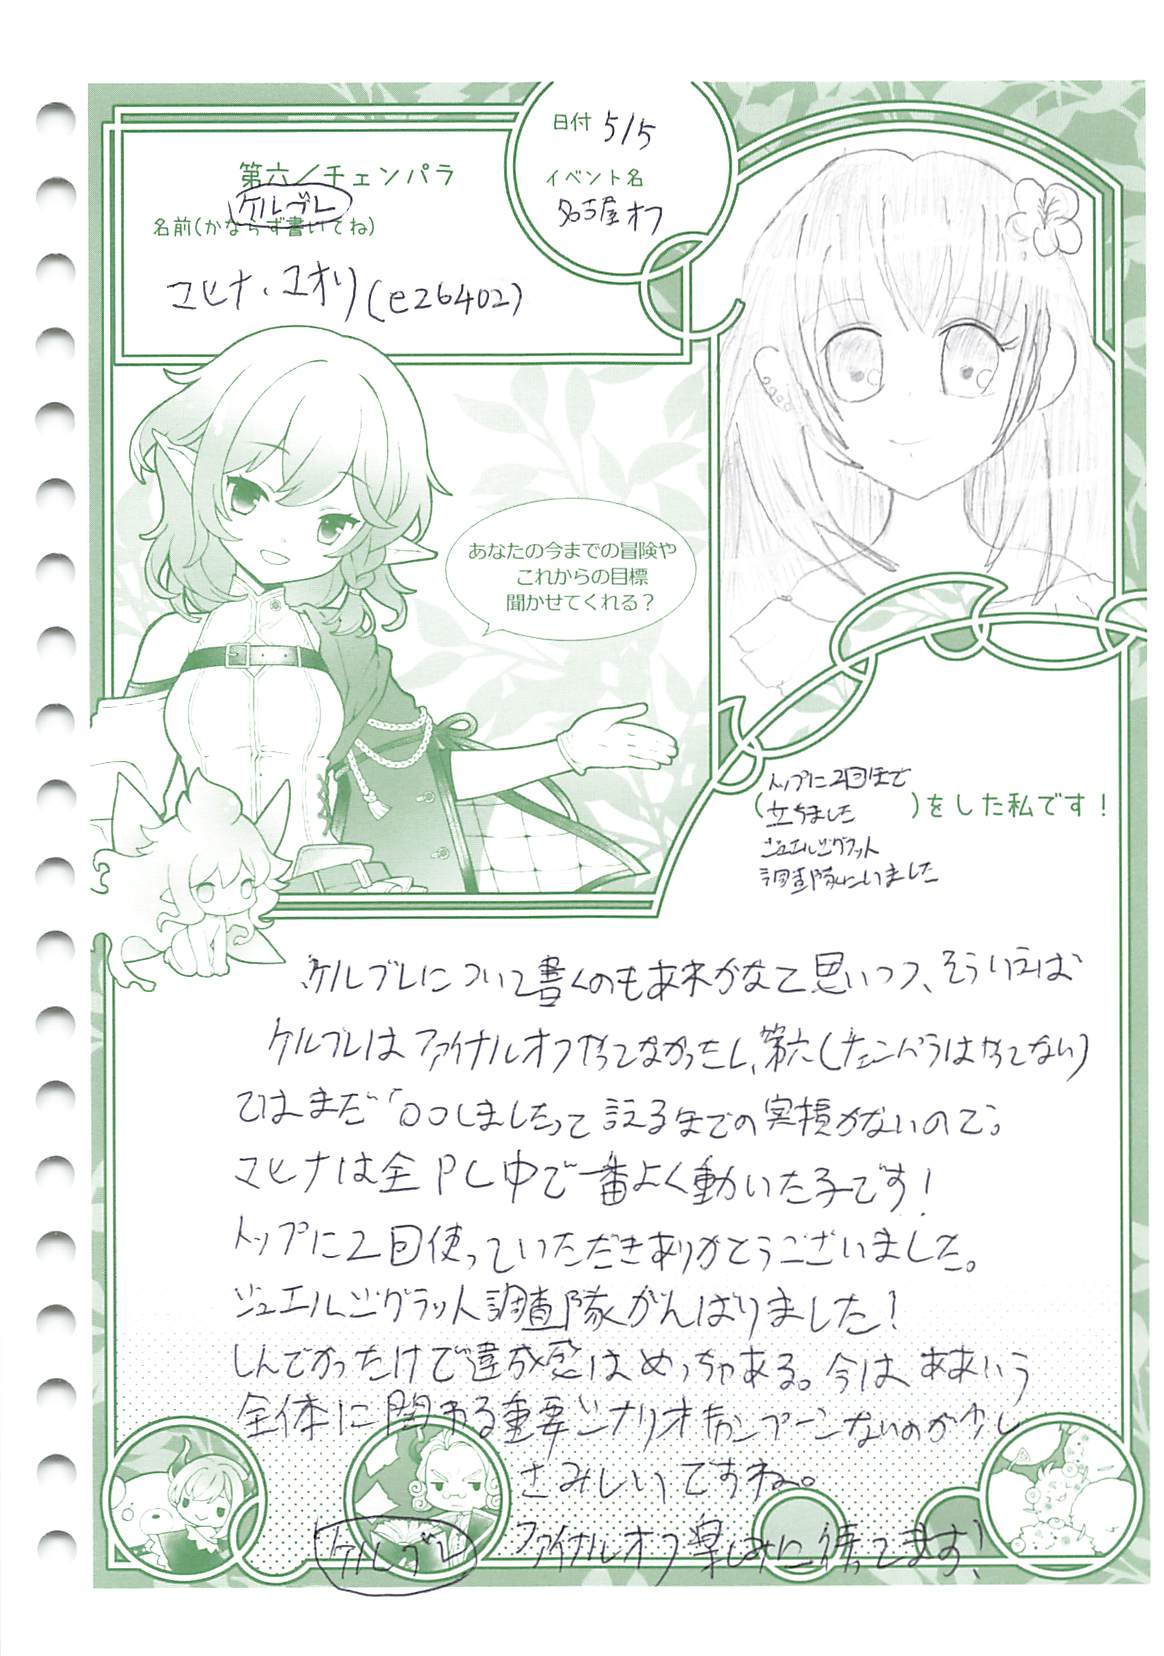 日付 5/5
イベント名
名古屋オフ
第六/チェンパラ
ケルブレ
名前(かならず書いてね)
マヒナ・ユオリ(e26402)
あなたの今までの冒険や
これからの目標
聞かせてくれる?
(トップに2回まで
立ちました )をした私です!
ジュエルジグラット
調査隊にいました
ケルブレについて書くのも未来かなと思いつつ、そういえば
ケルブレはファイナルオフやってなかったし、第六(チェンパラはやってない)
ではまだ「○○しました」って言えるまでの実績がないので。
マヒナは全PC中で一番よく動いた子です!
トップに2回使っていただきありがとうございました。
ジュエルジグラット調査隊がんばりました!
しんどかったけど達成感はめっちゃある。今は、ああいう
全体に関わる重要シナリオキャンペーンないのが少し
さみしいですね。
ケルブレ ファイナルオフ楽しみに待ってます!